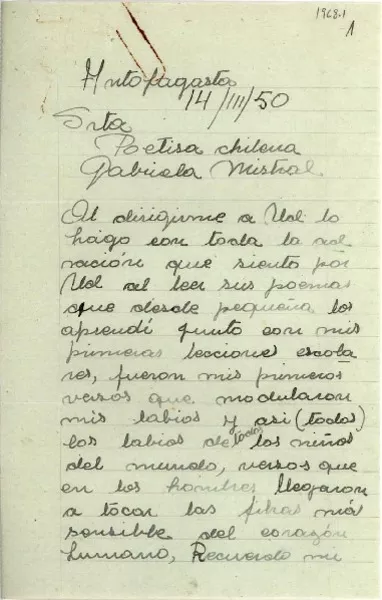 1968.1
1
Antofagasta
14/III/50
Srta
Poetisa chilena
Gabriela Mistral.
Al dirigirme a Ud lo
hago con toda la ad
miración que siento por
Ud al leer sus poemas
que desde pequeña los
aprendí junto con mis
primeras lecciones escola
res, fueron mis primeros
versos que modularon
mis labios y asi (todos)
los labios de todos los niños
del mundo, versos que
en los hombres llegaron
a tocar las fibras más
sensible del corazón
humano, Recuerdo mi